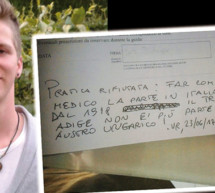 PRATICA RIFIUTATA: FAR COM
MEDICO LA PARTE IN ITALIA
DAL 1918 IL TR
ADIGE NON È PIÙ PARTE
AUSTRO UNGARICO!